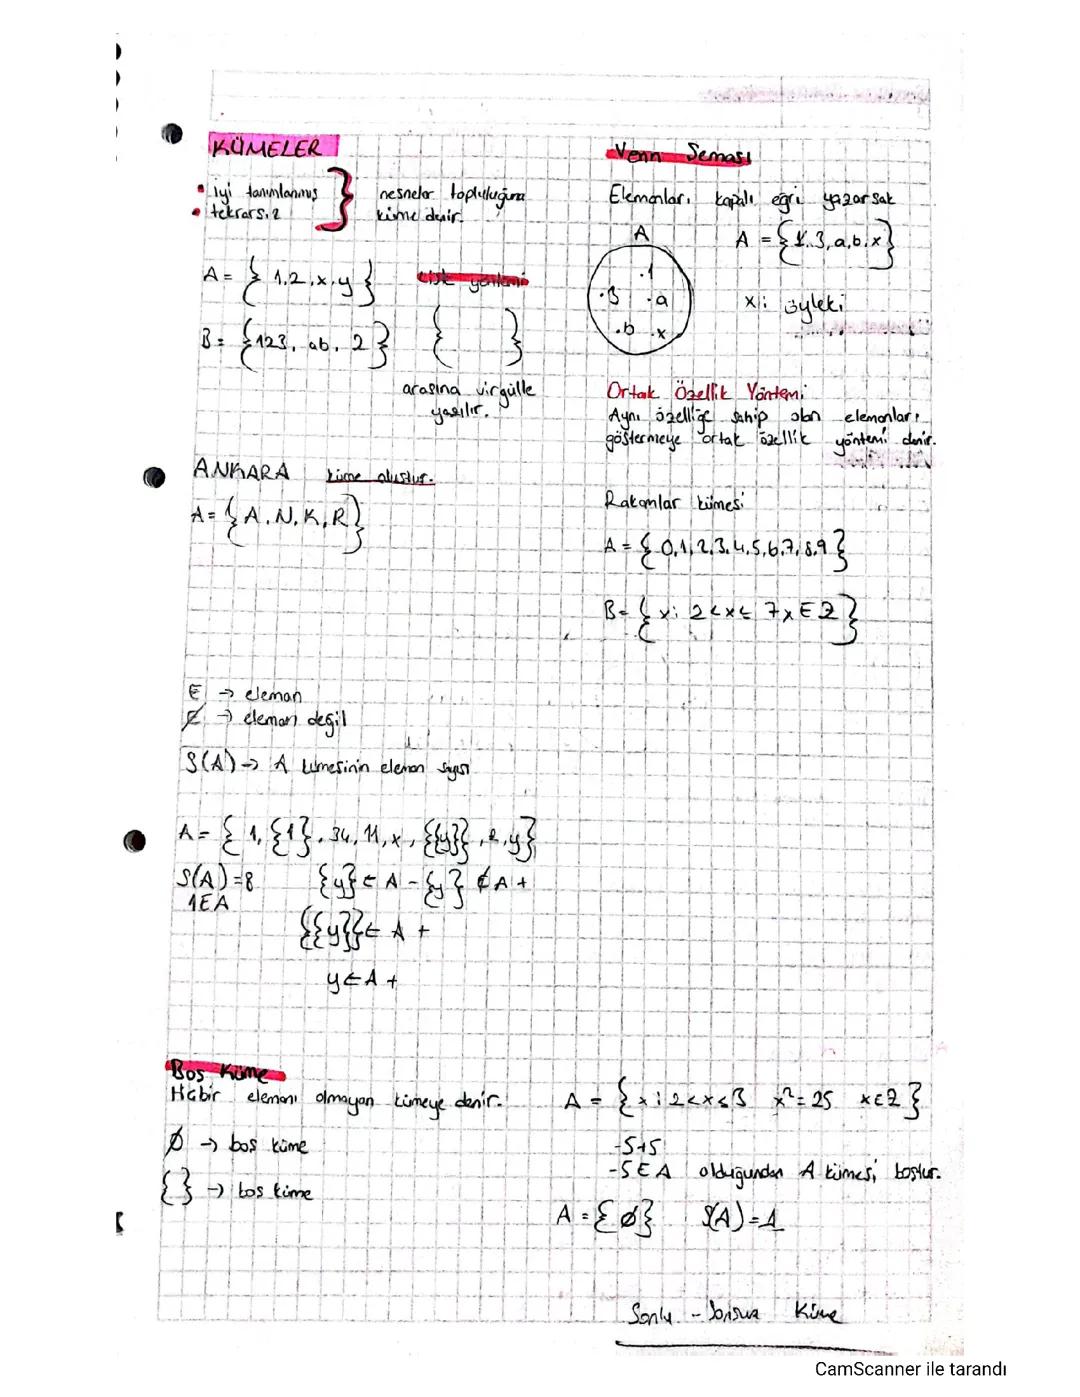 KÜMELER
• iyi tanımlanmış
• tekrarsız
} nesneler topluluğuna
küme denir.
A = { 1,2,x,y }
Liste yöntemi
B = {123, ab, 2}
{ }
arasına virgülle
yazılır.
ANKARA küme oluştur.
A = {A,N,K,R}
∈ → eleman
∉ → eleman değil
S(A) → A kümesinin eleman sayısı
A = { 1, {1}, 34, 11, x, {{y}}, 2, y}
S(A)=8 {y} ∈ A - {y} ∉ A +
1∈A
{{y}} ∈ A +
y ∈ A +
Boş Küme
Hiçbir elemanı olmayan kümeye denir.
∅ → boş küme
{ } → boş küme
Venn Şeması
Elemanları kapalı eğri yazarsak
A
A = {1,3,a,b,x}
.1
.3 .a
.b .x
x: öyleki
Ortak Özellik Yöntemi
Aynı özelliğe sahip olan elemanları
göstermeye ortak özellik yöntemi denir.
Rakamlar kümesi
A = { 0,1,2,3,4,5,6,7,8,9 }
B = { x: 2<x≤ 7 x∈Z }
A = { x: 2<x≤3 x²=25 x∈Z }
-5+5
-5∈A olduğundan A kümesi boştur.
A = {∅} S(A)=1
Sonlu - Sonsuz Küme
CamScanner ile tarandı